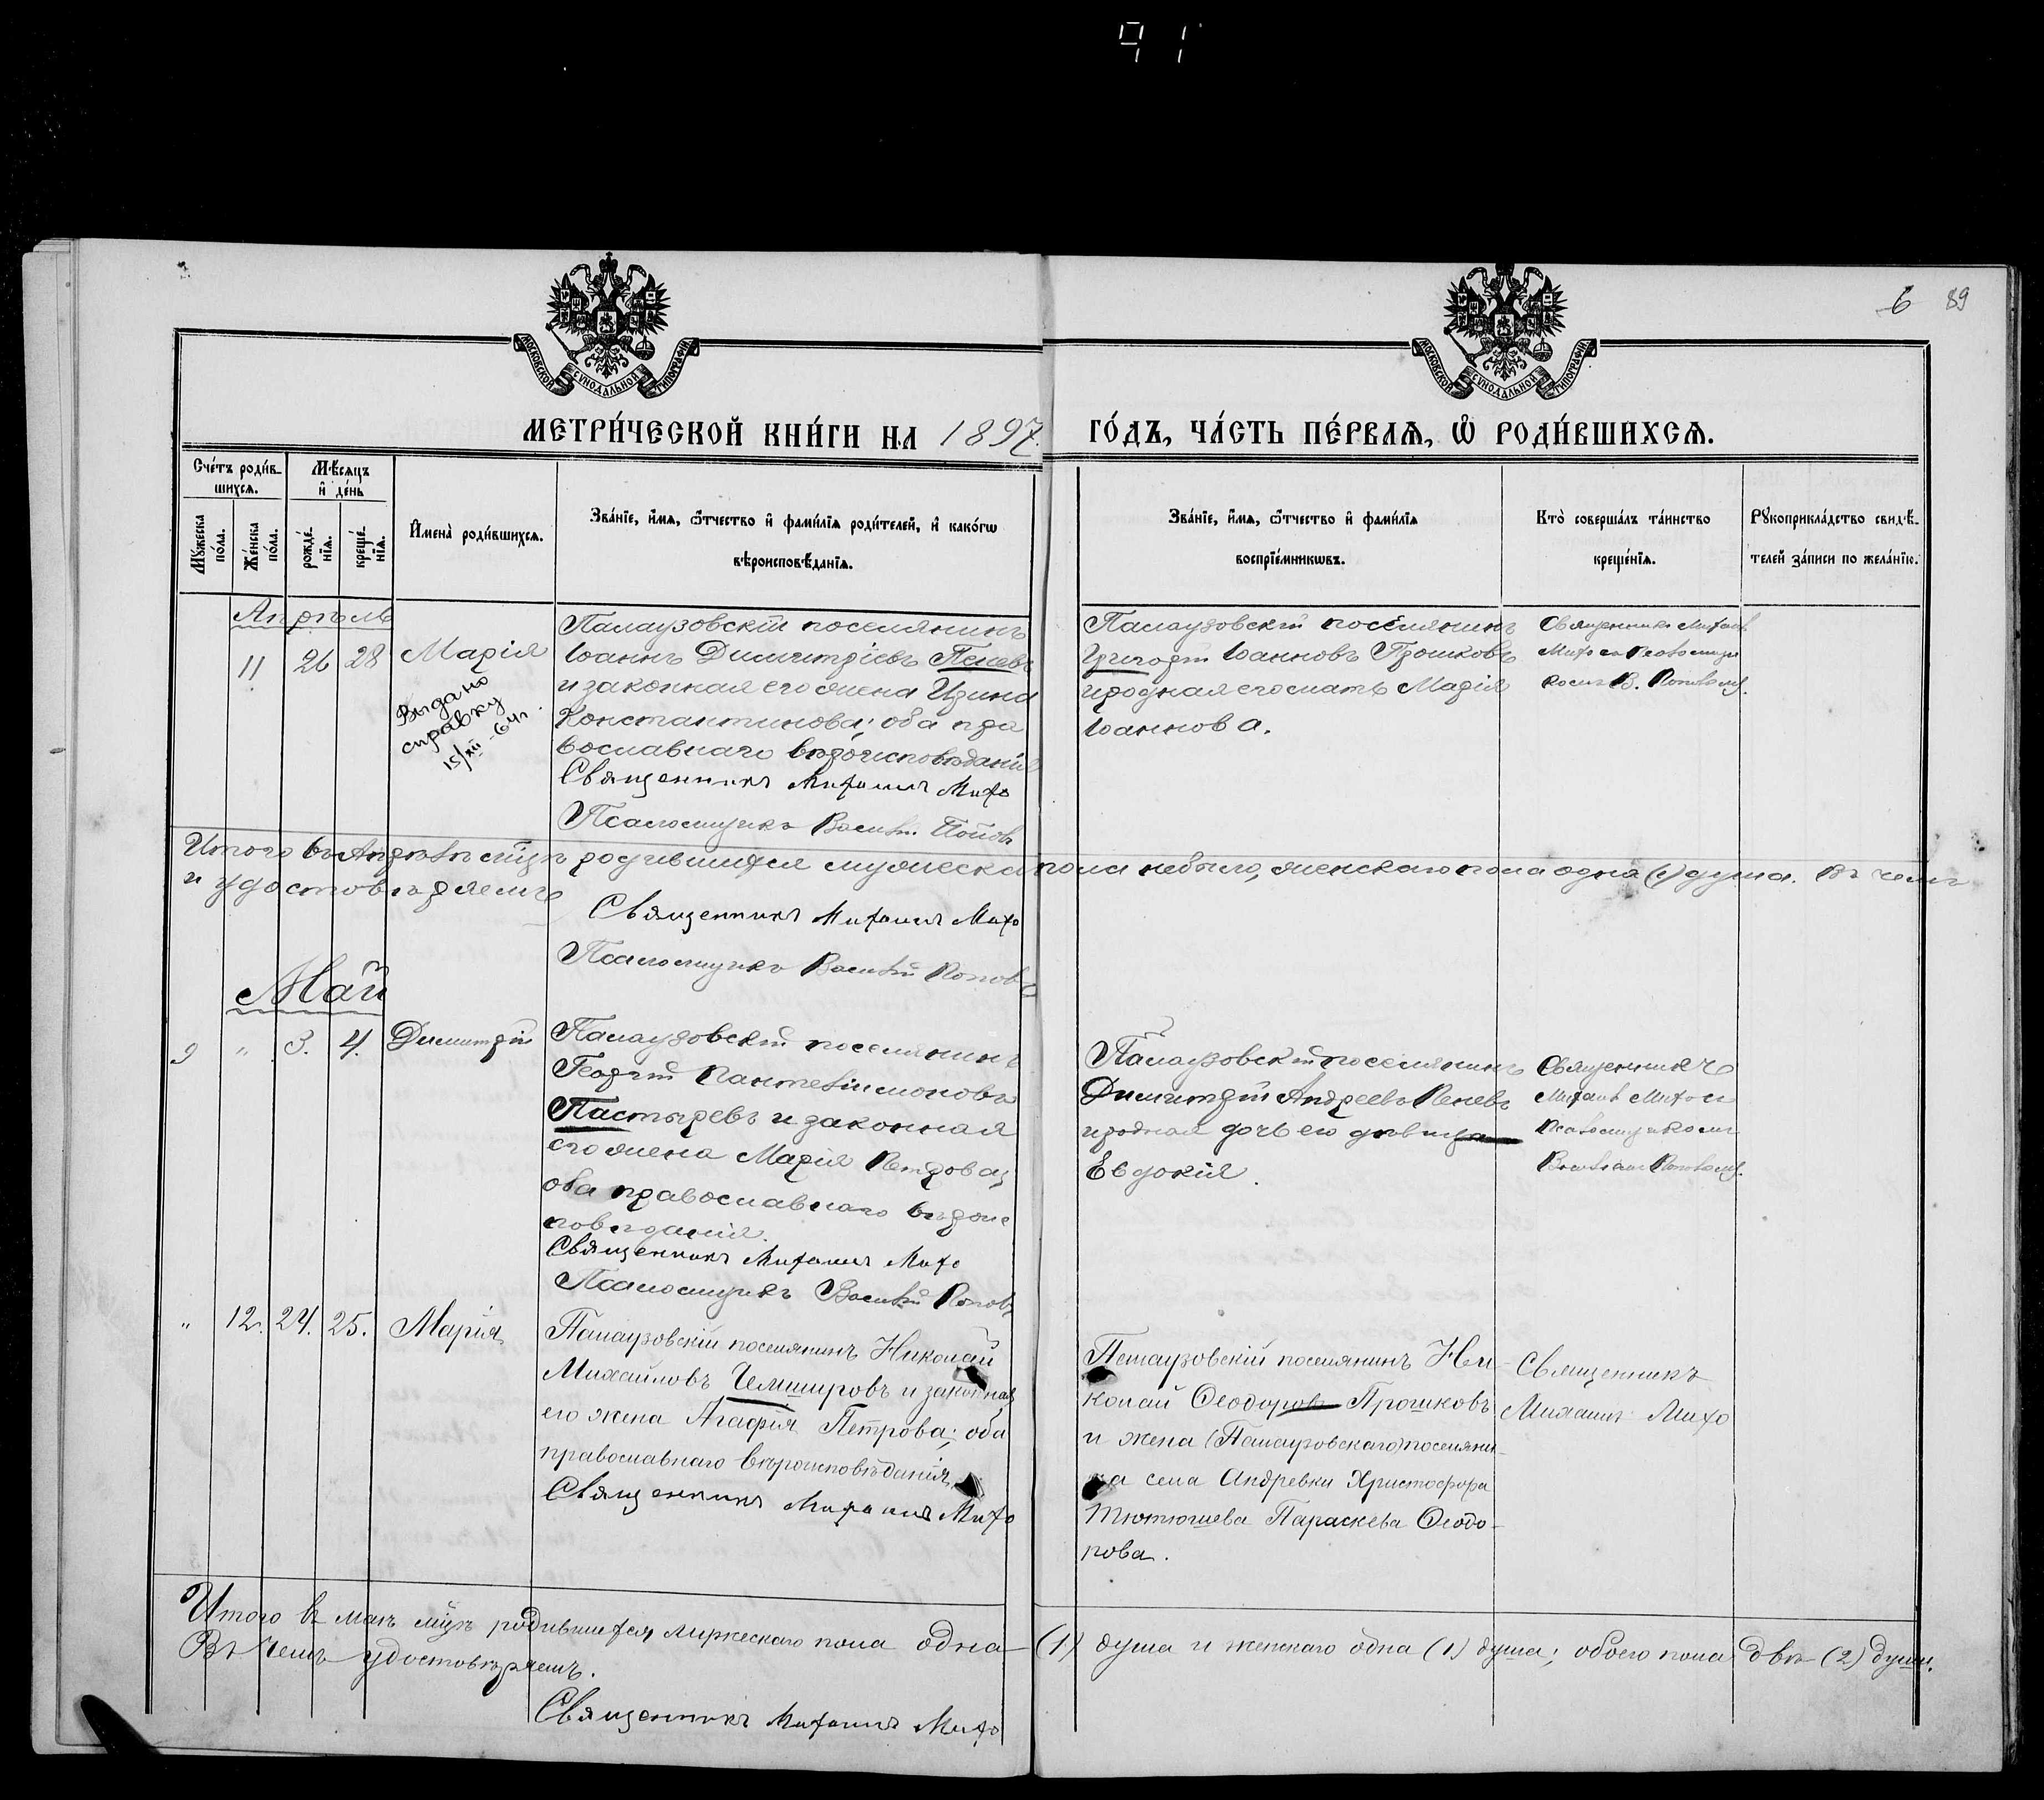 91
6 89
МОСКОВСКОЙ СУНОДАЛЬНОЙ ТИПОГРАФІИ
МОСКОВСКОЙ СУНОДАЛЬНОЙ ТИПОГРАФІИ
МЕТРИ́ЧЕСКОЙ КНИ́ГИ НА 1897. ГО́ДЪ, ЧА́СТЬ ПЕ́РВАѦ, Ѽ РОДИ́ВШИХСѦ.
Сче́тъ роди́в-
шихсѧ.
Мꙋжеска
по́ла.
Же́нска
по́ла.
Мѣ́сѧцъ
и҆ де́нь
рожде́-
нїѧ.
креще́-
нїѧ.
И҆мена̀ роди́вшихсѧ.
Зва́нїе, и҆́мѧ, ѻ҆́тчество и҆ фами́лїѧ роди́телей, и҆ како́гѡ
вѣроисповѣ́данїѧ.
Зва́нїе, и҆́мѧ, ѻ҆́тчество и҆ фами́лїѧ
воспрїе́мникѡвъ.
Кто̀ соверша́лъ та́инство
креще́нїѧ.
Рꙋкоприкла́дство свидѣ́-
телей за́писи по жела́нїю.
Апрѣль
11 26 28 Марія
Выдано
справку
15/XII-64г.
Палаузовскій поселянинъ
Іоаннъ Димитріевъ Пеневъ
и законная его жена Ирина
Константинова; оба пра
вославнаго вѣроисповѣданія
Священникъ Михаилъ Михо
Псаломщикъ Василій Поповъ
Палаузовскій поселянинъ
Григорій Іоанновъ Прошковъ
и родная его мать Марія
Іоаннова.
Священникъ Михаилъ
Михо съ псаломщи
комъ В. Поповымъ.
Итого въ Апрѣлѣ мцѣ родившихся мужеска пола небыло, женскаго пола одна (1) душа. Въ чемъ
и удостовѣряемъ
Священникъ Михаилъ Михо
Псаломщикъ Василій Поповъ
Май
9 " 3. 4. Димитрій
Палаузовскій поселянинъ
Георгій Пантелимоновъ
Пастыревъ и законная
его жена Марія Петрова;
оба православнаго вѣроис
повѣданія.
Священникъ Михаилъ Михо
Псаломщикъ Василій Поповъ
Палаузовскій поселянинъ
Димитрій Андреевъ Пеневъ
и родная дочь его дѣвица
Евдокія.
Священникъ
Михаилъ Михо съ
Псаломщикомъ
Василіемъ Поповымъ.
" 12. 24. 25. Марія
Палаузовскій поселянинъ Николай
Михайловъ Чемшировъ и законная
его жена Агафія Петрова; оба
православнаго вѣроисповѣданія
Священникъ Михаилъ Михо
Палаузовскій поселянинъ Ни-
колай Ѳеодоровъ Прошковъ
и жена (Палаузовскаго) поселяни-
на села Андревки Христофора
Тютюшева Параскева Ѳеодо-
рова.
Священникъ
Михаилъ Михо
Итого въ маѣ мцѣ родившихся мужескаго пола одна (1) душа и женскаго одна (1) душа; обоего пола двѣ (2) души.
Въ чемъ удостовѣряемъ.
Священникъ Михаилъ Михо